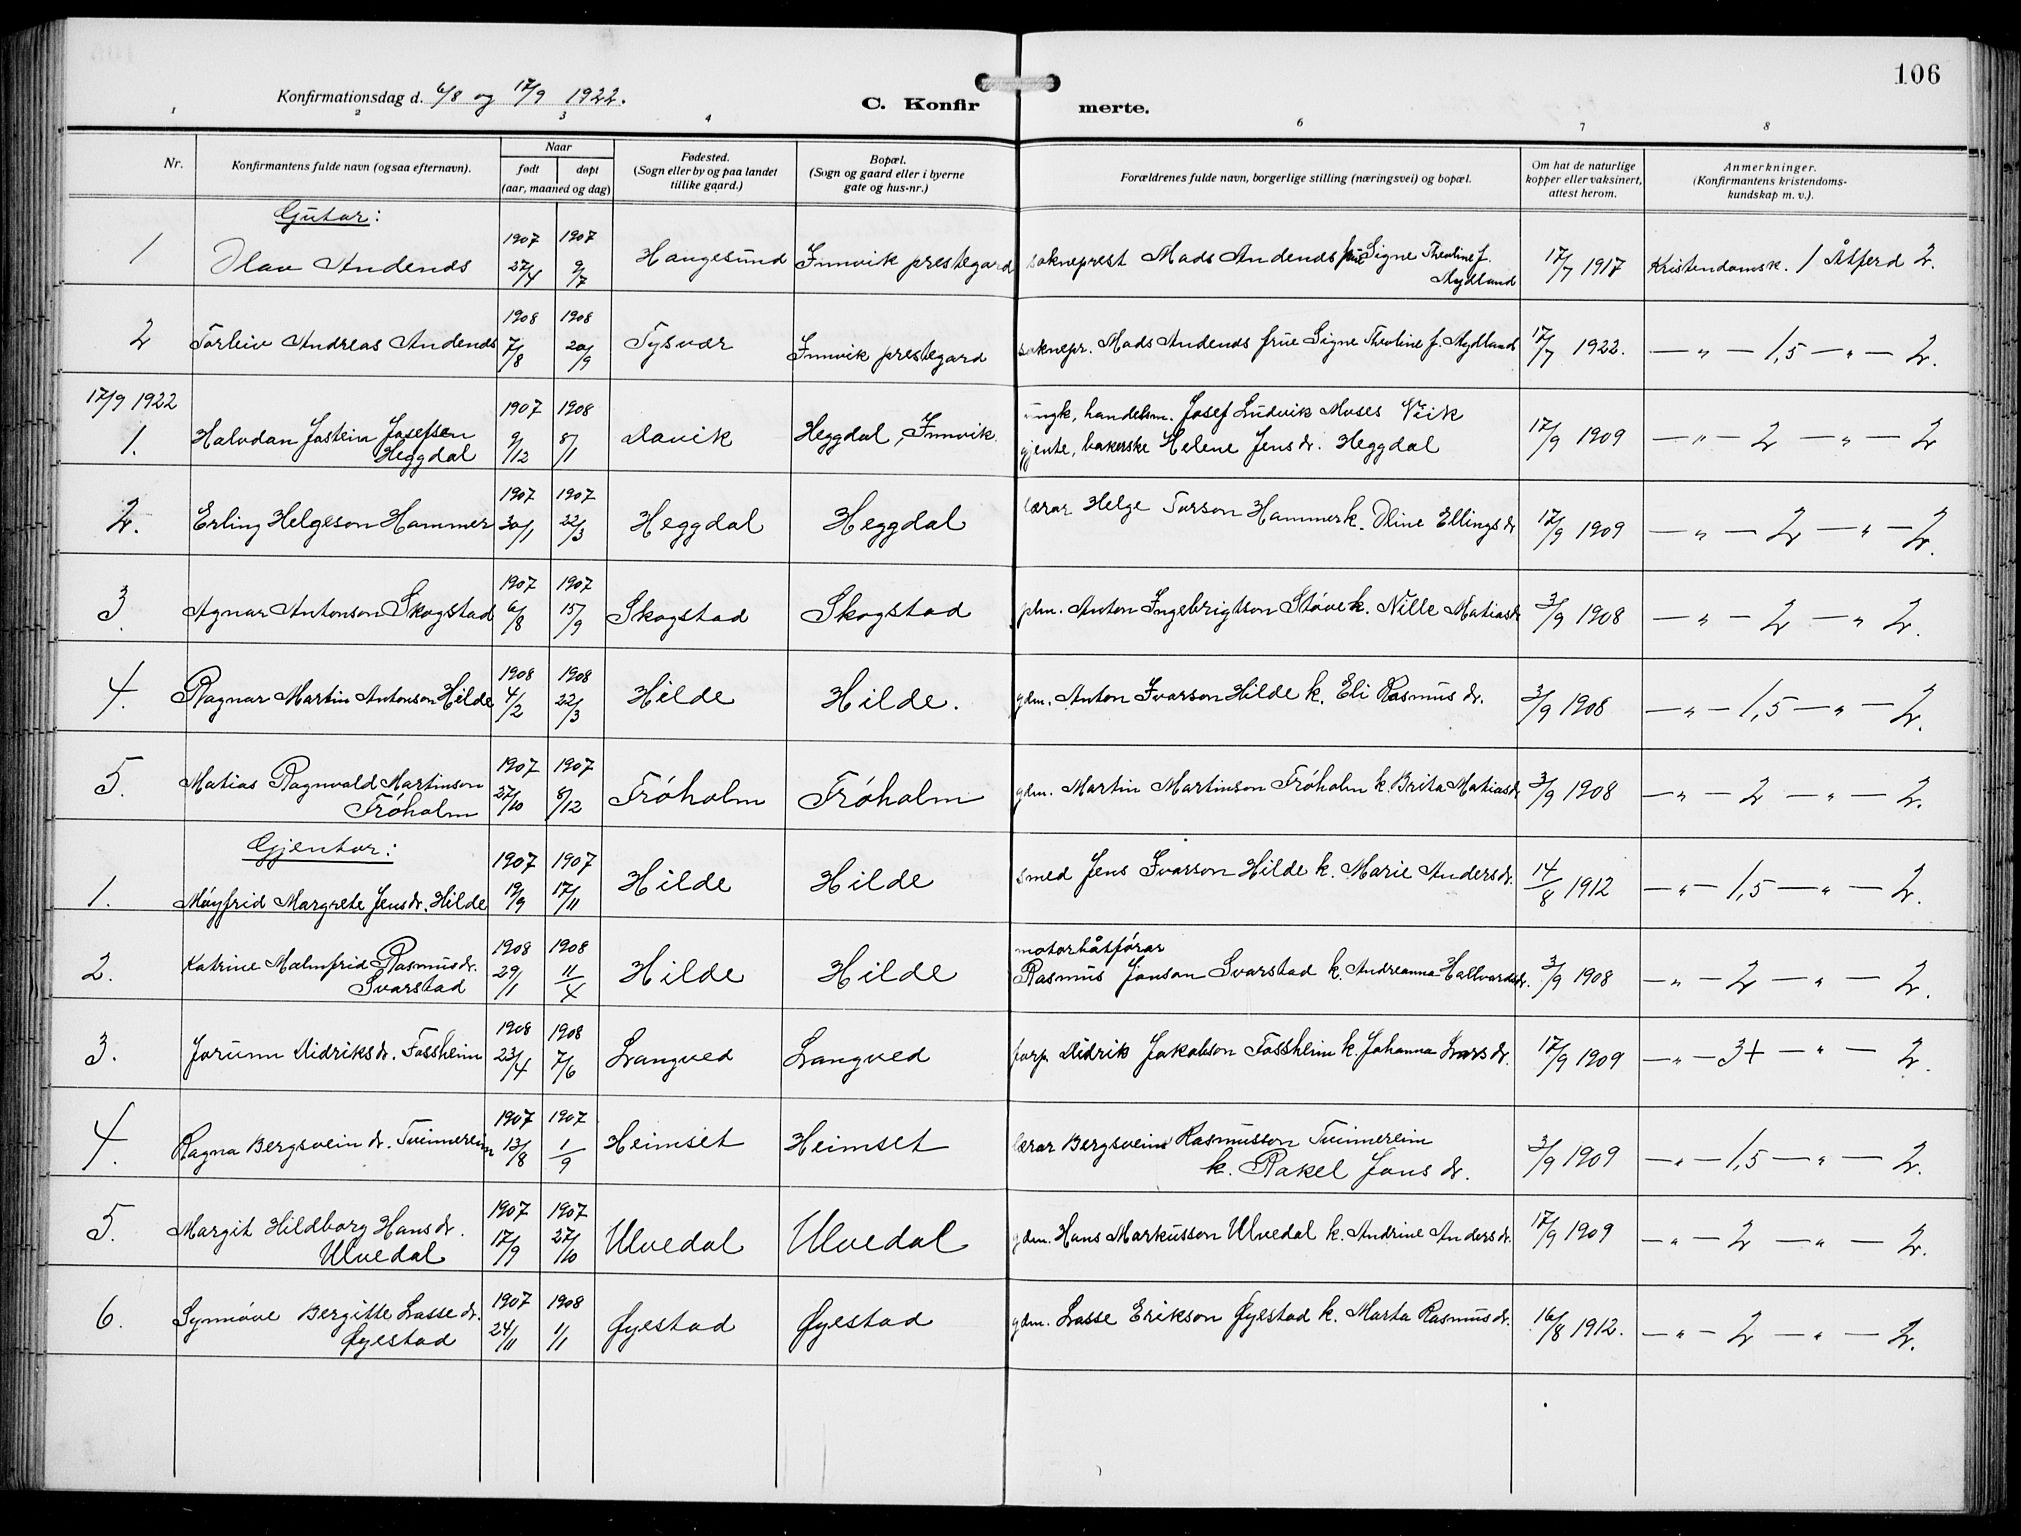 106
Konfirmationsdag d. 6/8 og 17/9 1922.
C. Konfir merte.
1 2 3 4 6 7 8
Nr.
Konfirmantens fulde navn (ogsaa efternavn).
Naar
født døpt
(aar, maaned og dag)
Fødested.
(Sogn eller by og paa landet
tillike gaard.)
Bopæl.
(Sogn og gaard eller i byerne
gate og hus-nr.)
Forældrenes fulde navn, borgerlige stilling (næringsvei) og bopæl.
Om hat de naturlige
kopper eller vaksinert,
attest herom.
Anmerkninger.
(Konfirmantens kristendoms-
kundskap m. v.).
Gutar:
1 Olav Andends 1907 27/4 1907 9/7 Haugesund Innvik prestegard sokneprest Mads Andends frue Signe Theoline f. Nydland 17/7 1917 Kristendomsk. 1 Åtferd 2.
2 Torleiv Andreas Andends 1908 7/8 1908 20/9 Tysvær Innvik prestegard soknepr. Mads Andends frue Signe Theoline f. Nydland 17/7 1922. — „ — 1,5 — „ — 2.
17/9 1922
1. Halvdan Jostein Josefsen Heggdal 1907 9/12 1908 8/1 Davik Heggdal, Innvik. ungk, handelsm. Josef Ludvik Moses Vik
gjente, bakerske Helene Jensdr. Heggdal 17/9 1909 — „ — 2 — „ — 2
2. Erling Helgeson Hammer 1907 30/1 1907 22/3 Heggdal Heggdal lærar Helge Torson Hammer k. Oline Ellingsdr 17/9 1909 — „ — 2 — „ — 2.
3. Agnar Antonson Skogstad 1907 6/8 1907 15/9 Skogstad Skogstad plm. Anton Ingebrigtson Støve k. Nille Matiasdr 3/9 1908 — „ — 2 — „ 2.
4. Ragnar Martin Antonson Hilde 1908 4/2 1908 22/3 Hilde Hilde. gdm. Anton Ivarson Hilde k. Eli Rasmusdr. 3/9 1908 — „ — 1,5 — „ — 2.
5. Matias Ragnvald Martinson Fróholm 1907 27/10 1907 8/12 Fróholm Fróholm gdm. Martin Martinson Fróholm k. Brita Matiasdr 3/9 1908 — „ — 2 — „ — 2.
Gjentor:
1. Móyfrid Margrete Jensdr. Hilde 1907 19/9 1907 17/11 Hilde Hilde smed Jens Ivarson Hilde k. Marie Andersdr. 14/8 1912 — „ — 1,5 — „ — 2.
2. Katrine Malmfrid Rasmusdr. Svarstad 1908 29/1 1908 11/4 Hilde Hilde motorbåtførar
Rasmus Jonson Svarstad k. Andreanna Hallvardsdr. 3/9 1908 — „ — 2 — „ — 2.
3. Jorunn Didriksdr. Fossheim 1908 23/4 1908 7/6 Langved Langved forp. Didrik Jakobson Fossheim k. Johanna Larsdr. 17/9 1909 — „ — 3+ — „ — 2.
4. Ragna Bergsveindr. Tvinnereim 1907 13/8 1907 1/9 Heimset Heimset lærar Bergsvein Rasmusson Tvinnereim
k. Rakel Jonsdr. 3/9 1909 — „ — 1,5 — „ — 2.
5. Margit Hildborg Hansdr. Ulvedal 1907 17/9 1907 27/10 Ulvedal Ulvedal gdm. Hans Markusson Ulvedal k. Andrine Andersdr. 17/9 1909 — „ — 2 — „ — 2.
6. Synnøve Bergitte Lassedr. Øyestad 1907 24/11 1908 1/1 Øyestad Øyestad gdm. Lasse Erikson Øyestad k. Marta Rasmusdr. 16/8 1912. — „ — 2 — „ — 2.